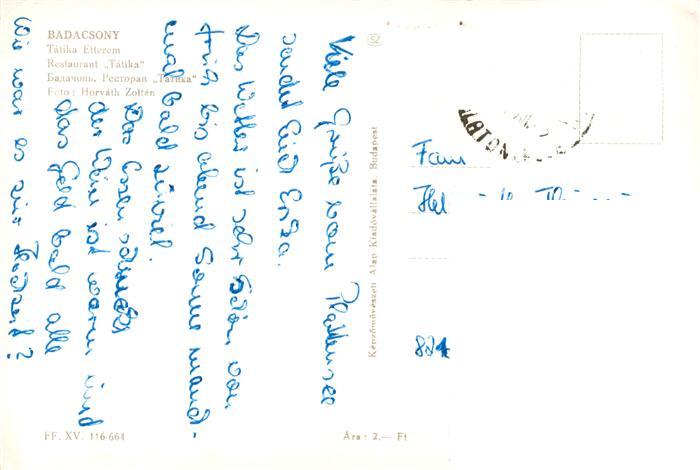 BADACSONY
Tátika Étterem
Restaurant „Tátika“
Бадачонь. Ресторан „Татика“
Foto: Horváth Zoltén
Viele Grüße vom Plattensee
sendet Euch Erika.
Das Wetter ist sehr schön von
früh bis abend Sonne manch-
mal bald zuviel.
Das Essen schmeckt
der Wein ist warm und
das Geld bald alle
Wie war es zur Hochzeit?
FF. XV. 116-664
Ára: 2.— Ft
Képzőművészeti Alap Kiadóvállalata, Budapest
SZ
Fam